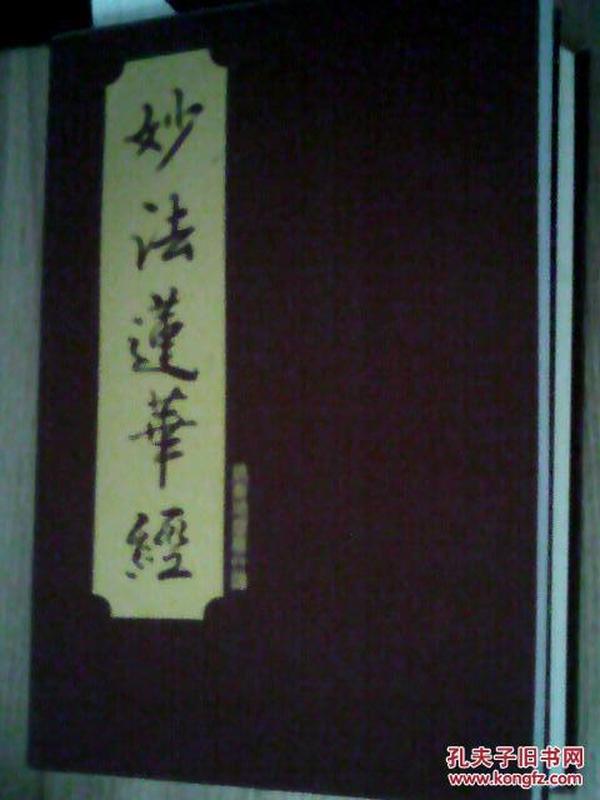 妙法蓮華經
孔夫子旧书网
www.kongfz.com